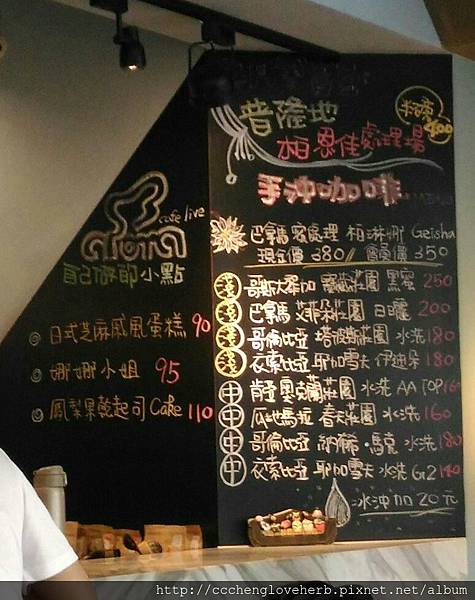 cafe live
自己做的小點
日式芝麻戚風蛋糕 90
娜娜小姐 95
鳳梨果乾起司Cake 110
普隆地
400
柏恩佳處理場
手沖咖啡
巴拿馬蜜處理 柏琳娜 Geisha
現金價 380 // 會員價 350
淺 哥斯大黎加 莊園 黑蜜 250
淺 巴拿馬 艾莉莊園 日曬 200
淺 哥倫比亞 莊園 水洗 180
淺 衣索比亞 耶加雪夫 伊迪朵 180
中 肯亞 奧克蘭莊園 水洗 AA TOP 160
中 瓜地馬拉 春天莊園 水洗 160
中 哥倫比亞 納稀・馬克 水洗 180
中 衣索比亞 耶加雪夫 水洗 G2 140
冰沖加20元
http://ccchengloveherb.pixnet.net/album